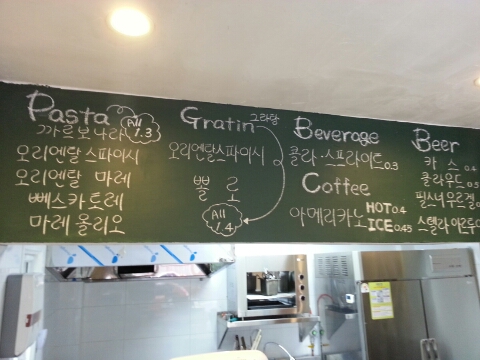 Pasta All 1.3
까르보나라
오리엔탈스파이시
오리엔탈 마레
뻬스카토레
마레올리오
Gratin 그라탕
오리엔탈스파이시
뽈로
All 1.4
Beverage
콜라·스프라이트 0.3
Coffee
아메리카노 HOT 0.4
ICE 0.45
Beer
카스 0.4
클라우드 0.5
필스너우르켈
스텔라아르투